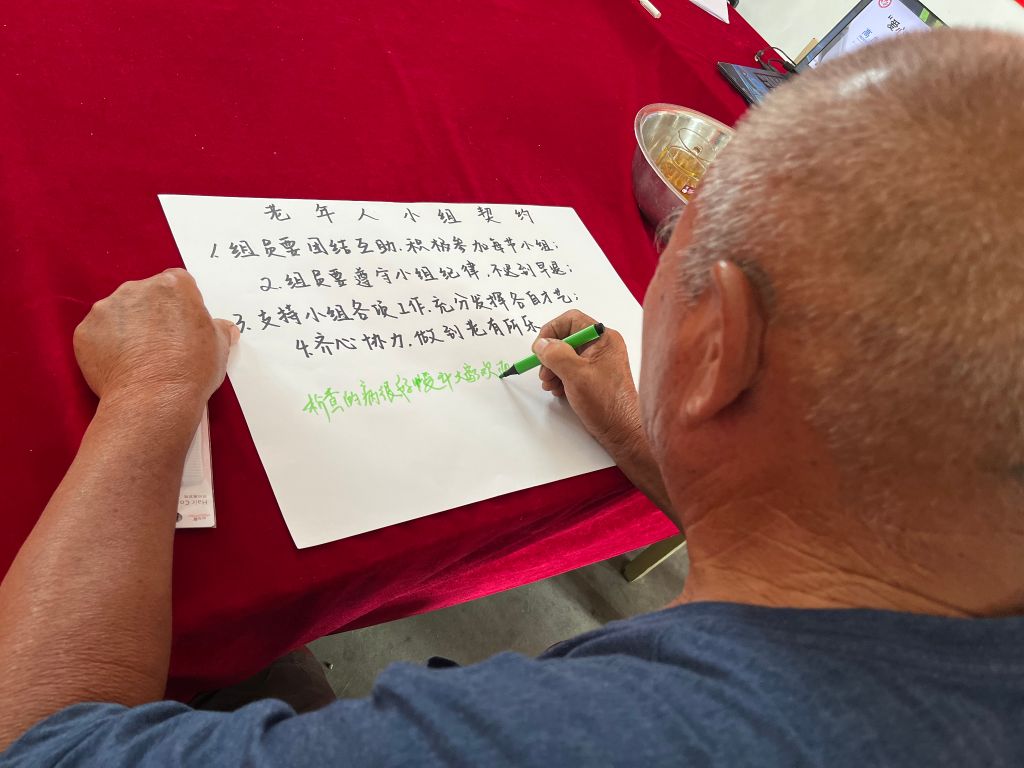 老年人小组契约
1.组员要团结互助，积极参加每节小组；
2.组员要遵守小组纪律，不迟到早退；
3.支持小组各项工作，充分发挥各自才艺；
4.齐心协力，做到老有所乐
的病很
Hair Co